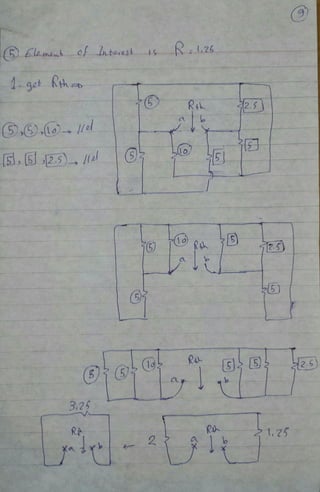 9
5 Element of Interest is R = 1.25
1- get Rth
5 2.5
Rth
a b
5, 5, 10 → //el
5 10 5 5
5, 5, 2.5 → //el
5 10 Rth 5 2.5
a b
5 5
5 5 10 Rth 5 5 2.5
a b
3.25
Rth
a b
← 2 Rth 1.25
a b